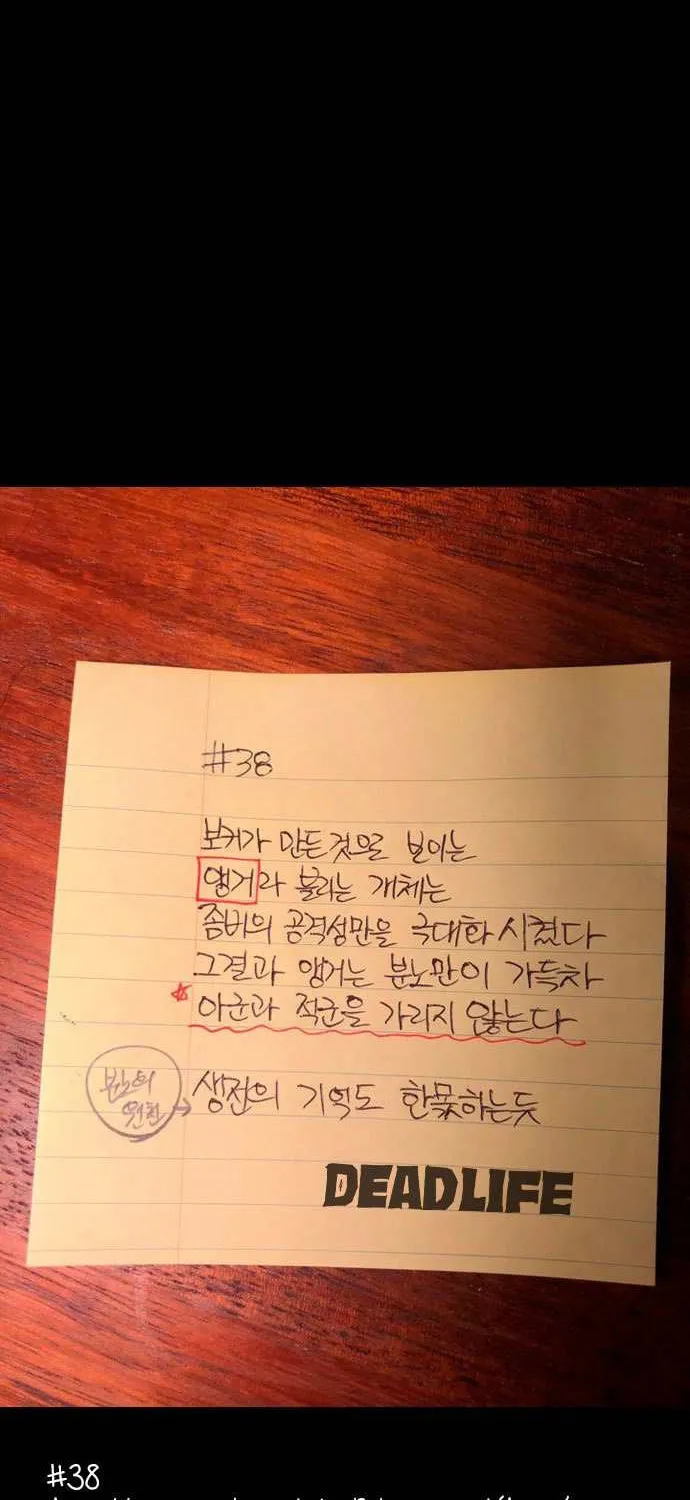 #38
보커가 만든것으로 보이는
앵거라 불리는 개체는
좀비의 공격성만을 극대화 시켰다
그결과 앵거는 분노만이 가득차
아군과 적군을 가리지 않는다
분노의
원한
생전의 기억도 한몫하는듯
DEADLIFE
#38